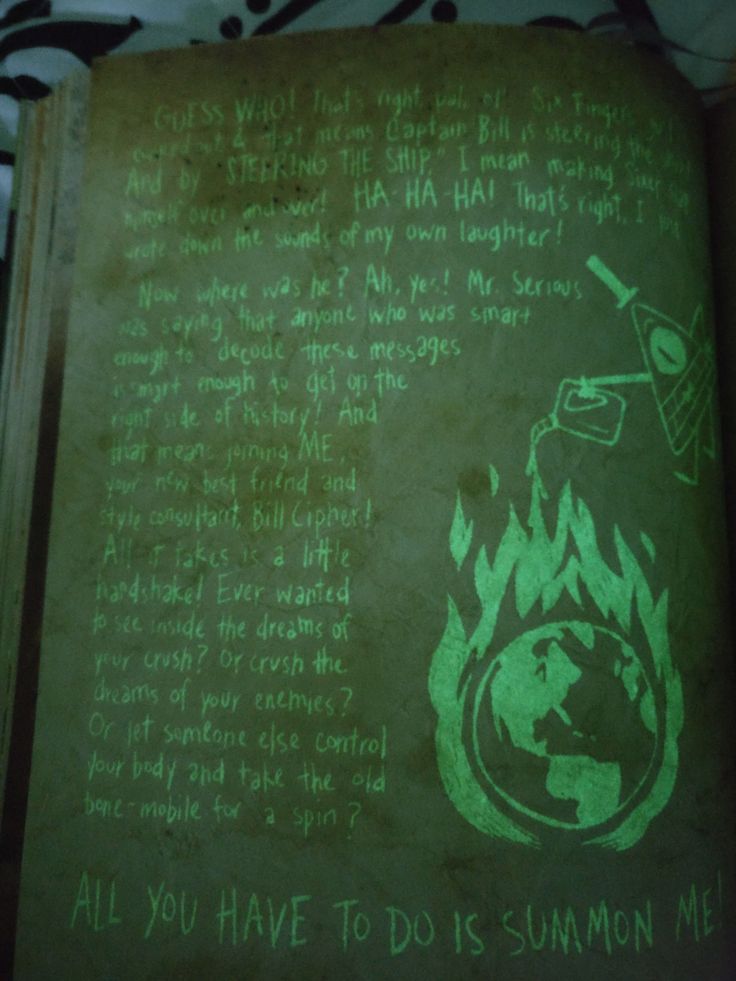 GUESS WHO! That's right, pal, ol' Six Fingers got
knocked out & that means Captain Bill is steering the ship!
And by "STEERING THE SHIP," I mean making Sixer slap
himself over and over! HA-HA-HA! That's right, I just
wrote down the sounds of my own laughter!
Now where was he? Ah, yes! Mr. Serious
was saying that anyone who was smart
enough to decode these messages
is smart enough to get on the
right side of history! And
that means joining ME,
your new best friend and
style consultant, Bill Cipher!
All it takes is a little
handshake! Ever wanted
to see inside the dreams of
your crush? Or crush the
dreams of your enemies?
Or let someone else control
your body and take the old
bone-mobile for a spin?
ALL YOU HAVE TO DO IS SUMMON ME!